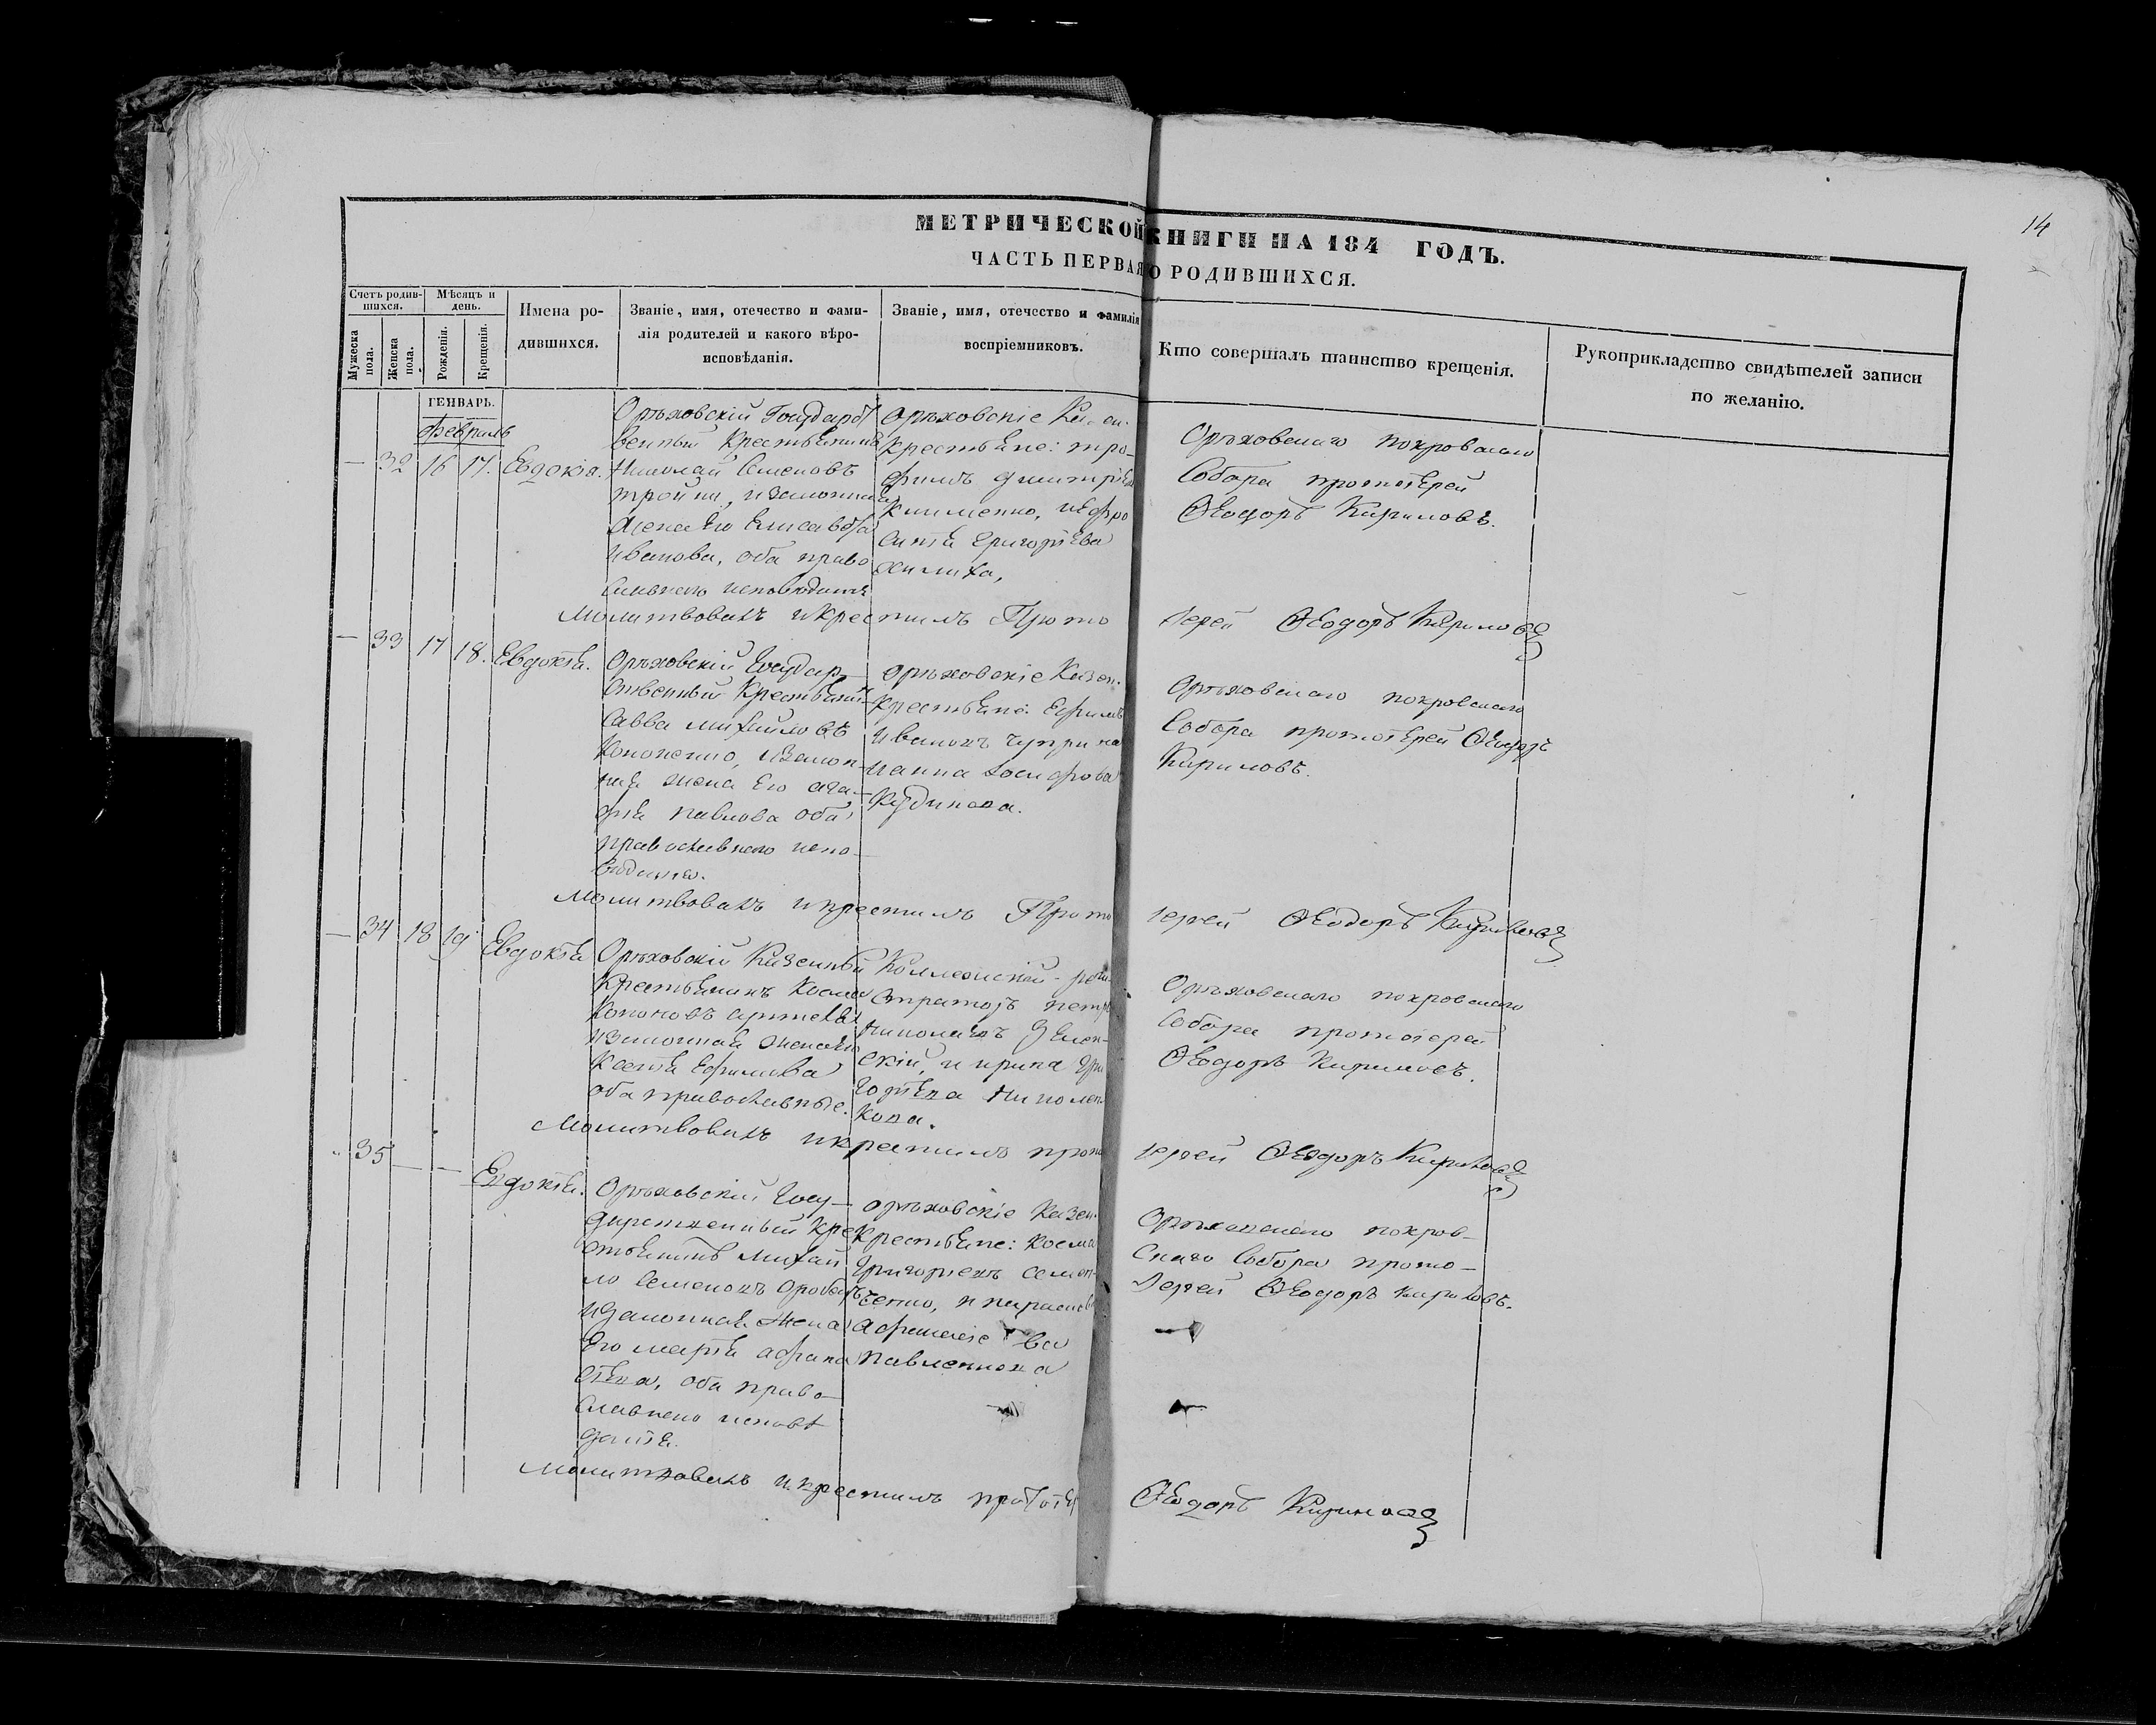 14
МЕТРИЧЕСКОЙ КНИГИ НА 184 ГОДЪ.
ЧАСТЬ ПЕРВАЯ О РОДИВШИХСЯ.
Счетъ родив-
шихся.
Мужеска пола.
Женска пола.
Мѣсяцъ и
день.
Рожденія.
Крещенія.
Имена ро-
дившихся.
Званіе, имя, отечество и фами-
лія родителей и какого вѣро-
исповѣданія.
Званіе, имя, отечество и фамилія
воспріемниковъ.
Кто совершалъ таинство крещенія.
Рукоприкладство свидѣтелей записи
по желанію.
ГЕНВАРЬ.
февраль
— 32 16 17. Евдокія.
Орѣховскій Государст
венный Крестьянинъ
Николай Семеновъ
тройни, и законная
жена Его Елисавета
Иванова, оба право
славнаго исповѣданія
Орѣховскіе Казен.
Крестьяне: тро-
фимъ дмитріевъ
клименко, и Ефро
синія Григоріева
Орѣховскаго покровскаго
Собора протоіерей
Ѳеодоръ Кириловъ.
Молитвовалъ и крестилъ Прото
іерей Ѳеодоръ Кириловъ
— 33 17 18. Евдокія.
Орѣховскій Государ-
ственный Крестьянинъ
Савва михайловъ
Кононенко, и закон-
ная жена Его ага-
фія павлова оба
православнаго испо-
вѣданія.
орѣховскіе Казен.
Крестьяне: Ефимъ
Ивановъ чуприна
и анна Іосифова
Кудинова.
Орѣховскаго покровскаго
Собора протоіерей Ѳеодоръ
Кириловъ.
Молитвовалъ и крестилъ Прото
іерей Ѳеодоръ Кириловъ
— 34 18 19 Евдокія
Орѣховскій Казенный
Крестьянинъ Косма
Кононовъ
и законная жена Его
Ксенія Ефимова
оба православные.
Коллежскій реги-
страторъ петръ
Николаевъ
скій, и ирина Гри
горіева Николен-
кова.
Орѣховскаго покровскаго
Собора протоіерей
Ѳеодоръ Кириловъ.
Молитвовалъ и крестилъ прото
іерей Ѳеодоръ Кириловъ
35 — — Евдокія.
Орѣховскій Госу-
дарственный Кре
стьянинъ михай
ло Семеновъ
и законная жена
Его марія афана
сіева, оба право-
славнаго исповѣ
данія.
орѣховскіе Казен.
Крестьяне: Косма
Григорьевъ Семен-
ченко, и параскева
павленкова
Орѣховскаго покров-
скаго Собора прото-
іерей Ѳеодоръ Кириловъ.
Молитвовалъ и крестилъ протоіе
Ѳеодоръ Кириловъ